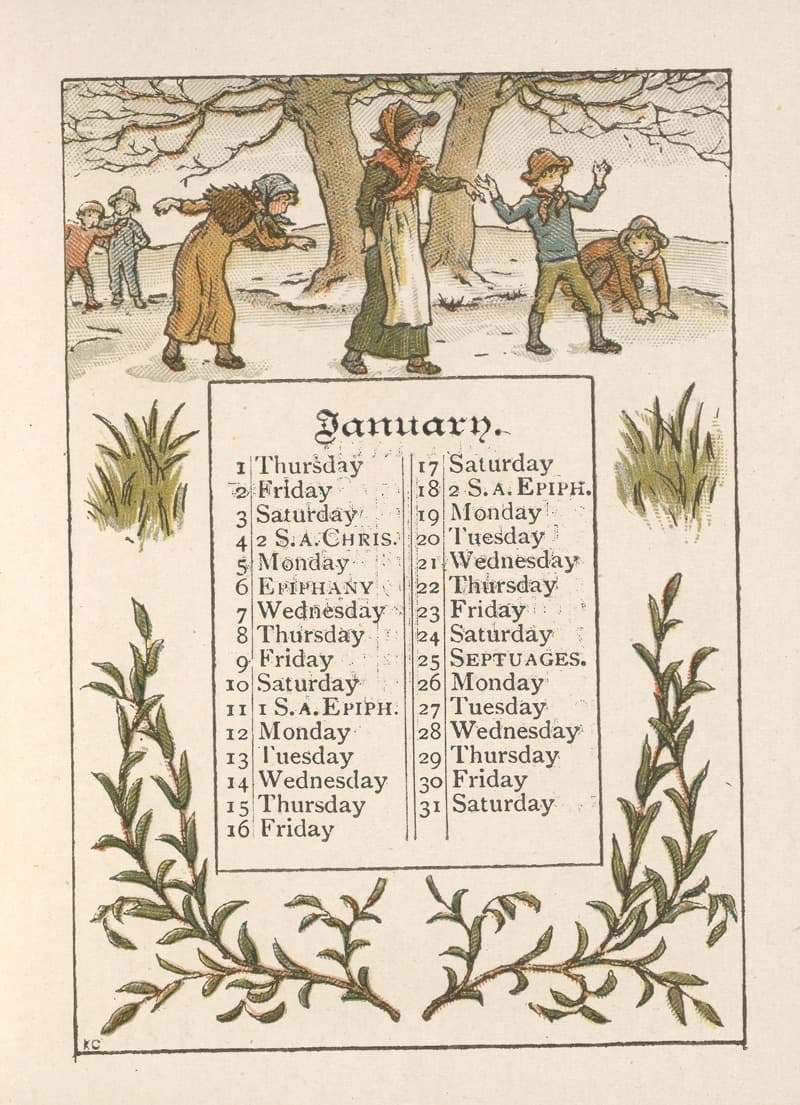 January.
1 Thursday
2 Friday
3 Saturday
4 2 S. A. CHRIS.
5 Monday
6 EPIPHANY
7 Wednesday
8 Thursday
9 Friday
10 Saturday
11 1 S. A. EPIPH.
12 Monday
13 Tuesday
14 Wednesday
15 Thursday
16 Friday
17 Saturday
18 2 S. A. EPIPH.
19 Monday
20 Tuesday
21 Wednesday
22 Thursday
23 Friday
24 Saturday
25 SEPTUAGES.
26 Monday
27 Tuesday
28 Wednesday
29 Thursday
30 Friday
31 Saturday
KG